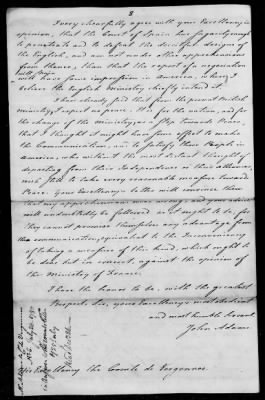 3
I very chearfully agree with your Excellency in
opinion, that the Court of Spain has sagacity enough
to penetrate and to defeat the deceitful designs of
the English, and am not under other apprehensions
from thence, than that the report of a negociation
with Spain
will leave some impression in America, where, I
believe the English Ministry chiefly intend it.
I have already said that from the present British
ministry, I expect no peace. It is for the nation, and for
the change of the Ministry, as a step towards Peace,
that I thought it might have some effect to make
the Communication, and to satisfy those People in
America, who without the most distant thought of
departing from their independence or their alliance
wish still to take every reasonable measure towards
Peace. Your Excellency's letter will convince them
that my apprehensions were wrong, and your advice
will undoubtedly be followed, as it ought to be, for
they cannot promise themselves any advantage from
the communication, equivalent to the Inconveniency
of taking a measure of this kind, which ought to
be done but in concert, against the opinion of
the Ministry of France.
I have the honor to be, with the greatest
Respect, Sir, your Excellency's most obedient
and most humble Servant.
John Adams
His Excellency the Comte de Vergennes